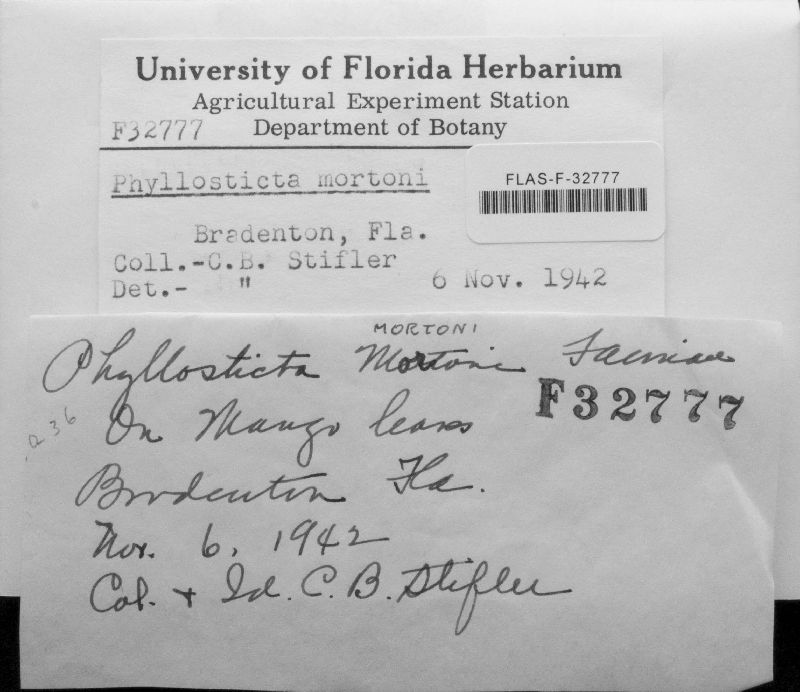 University of Florida Herbarium
Agricultural Experiment Station
F32777 Department of Botany
Phyllosticta mortoni
FLAS-F-32777
Bradenton, Fla.
Coll.-C.B. Stifler
Det.- " 6 Nov. 1942
MORTONI
Phyllosticta Mortoni
F32777
On Mango leaves
Bradenton Fla.
Nov. 6, 1942
Col. + Id. C. B. Stifler